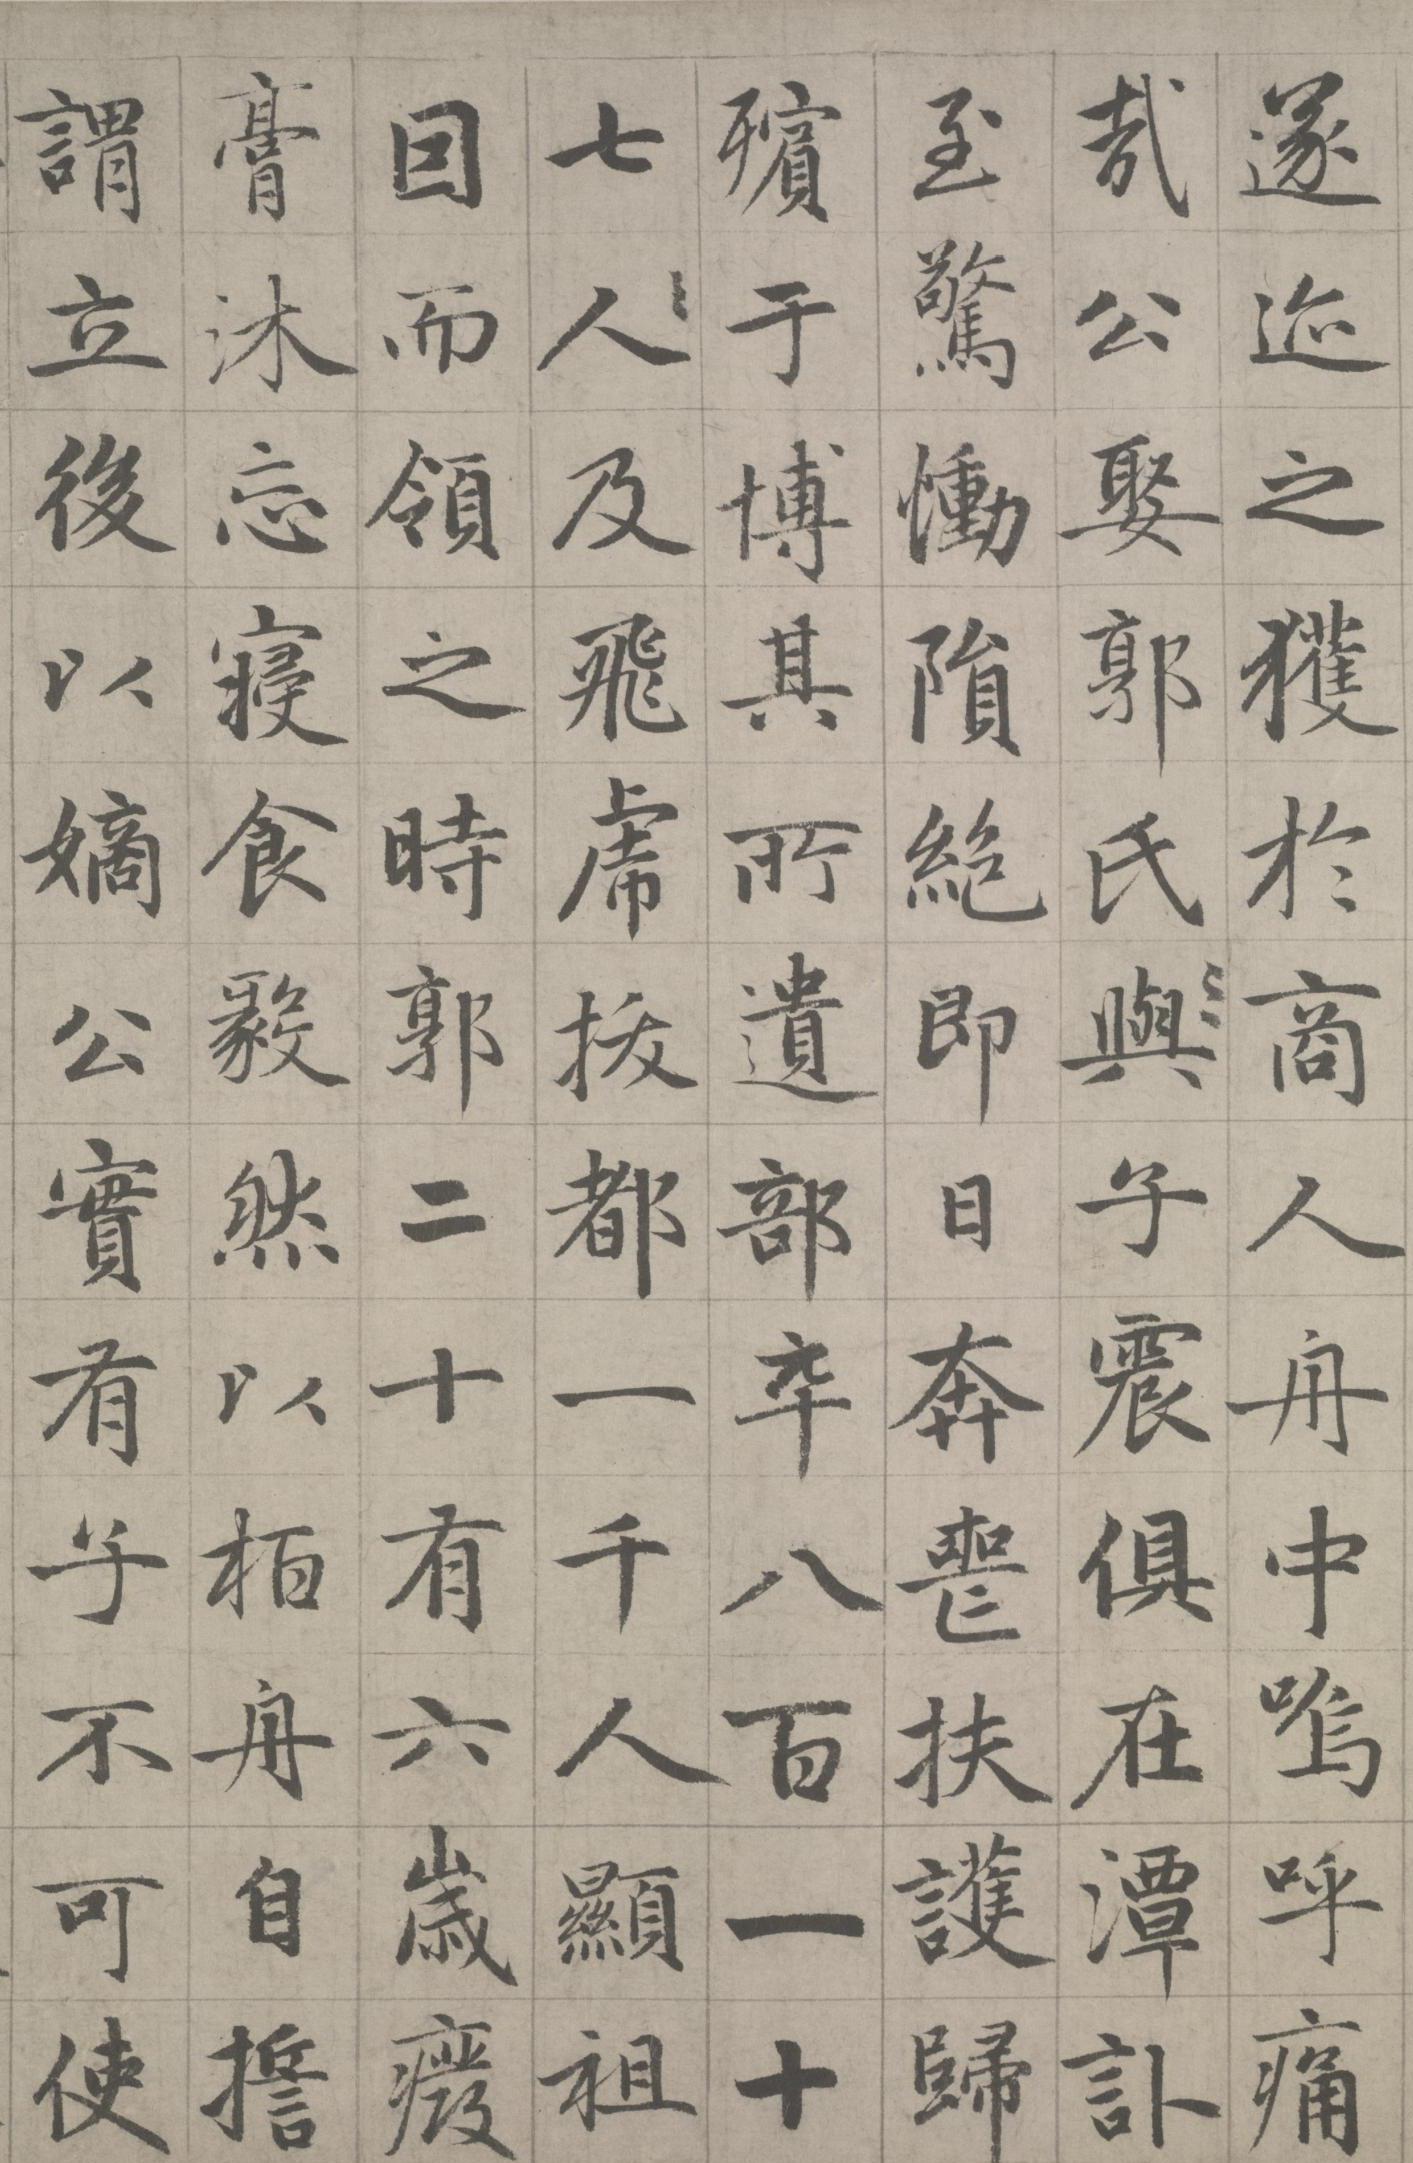 遂迹之獲於商人舟中嗚呼痛
哉公娶郭氏與子震俱在潭訃
至驚慟隕絕即日奔喪扶護歸
殯于博其所遺部卒八百一十
七人及飛虎拔都一千人顯祖
回而領之時郭二十有六歲癈
膏沐忘寢食毅然以栢舟自誓
謂立後以嫡公實有子不可使